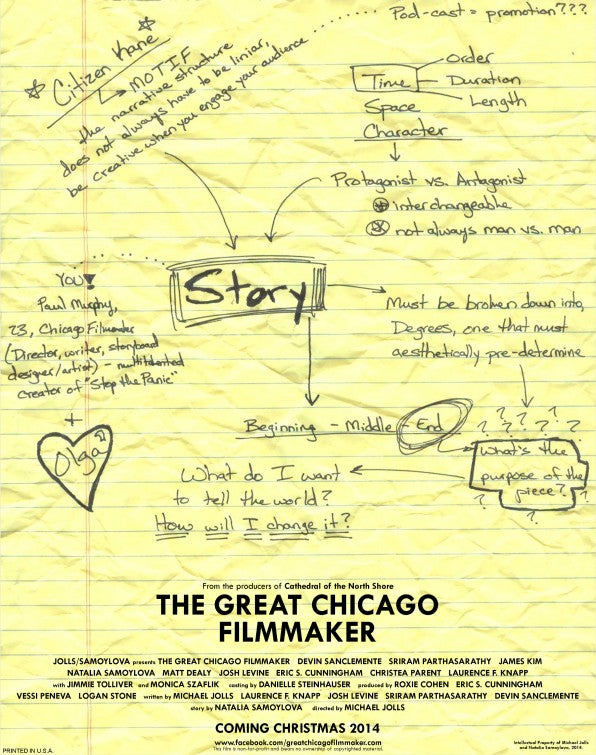 Pod-cast = promotion???
Citizen Kane
MOTIF
the narrative structure
does not always have to be liniar,
be creative when you engage your audience
Order
Time
Duration
Length
Space
Character
Protagonist vs. Antagonist
interchangeable
not always man vs. man
Story
YOU!
Paul Murphy,
23, Chicago Filmmaker
(Director, writer, storyboard
designer/artist) - multitalented
creator of "Stop the Panic"
+
Olga
Must be broken down into,
Degrees, one that must
aesthetically pre-determine
Beginning - Middle - End
? ? ? ? ? ? ?
What's the
purpose of the
piece?
? ? ?
What do I want
to tell the world?
How will I change it?
From the producers of Cathedral of the North Shore
THE GREAT CHICAGO
FILMMAKER
JOLLS/SAMOYLOVA presents THE GREAT CHICAGO FILMMAKER DEVIN SANCLEMENTE SRIRAM PARTHASARATHY JAMES KIM
NATALIA SAMOYLOVA MATT DEALY JOSH LEVINE ERIC S. CUNNINGHAM CHRISTEA PARENT LAURENCE F. KNAPP
with JIMMIE TOLLIVER and MONICA SZAFLIK casting by DANIELLE STEINHAUSER produced by ROXIE COHEN ERIC S. CUNNINGHAM
VESSI PENEVA LOGAN STONE written by MICHAEL JOLLS LAURENCE F. KNAPP JOSH LEVINE SRIRAM PARTHASARATHY DEVIN SANCLEMENTE
story by NATALIA SAMOYLOVA directed by MICHAEL JOLLS
COMING CHRISTMAS 2014
www.facebook.com/greatchicagofilmmaker.com
This film is non-profit and bears no ownership of copyrighted material.
PRINTED IN U.S.A.
Intellectual Property of Michael Jolls
and Natalia Samoylova, 2014.